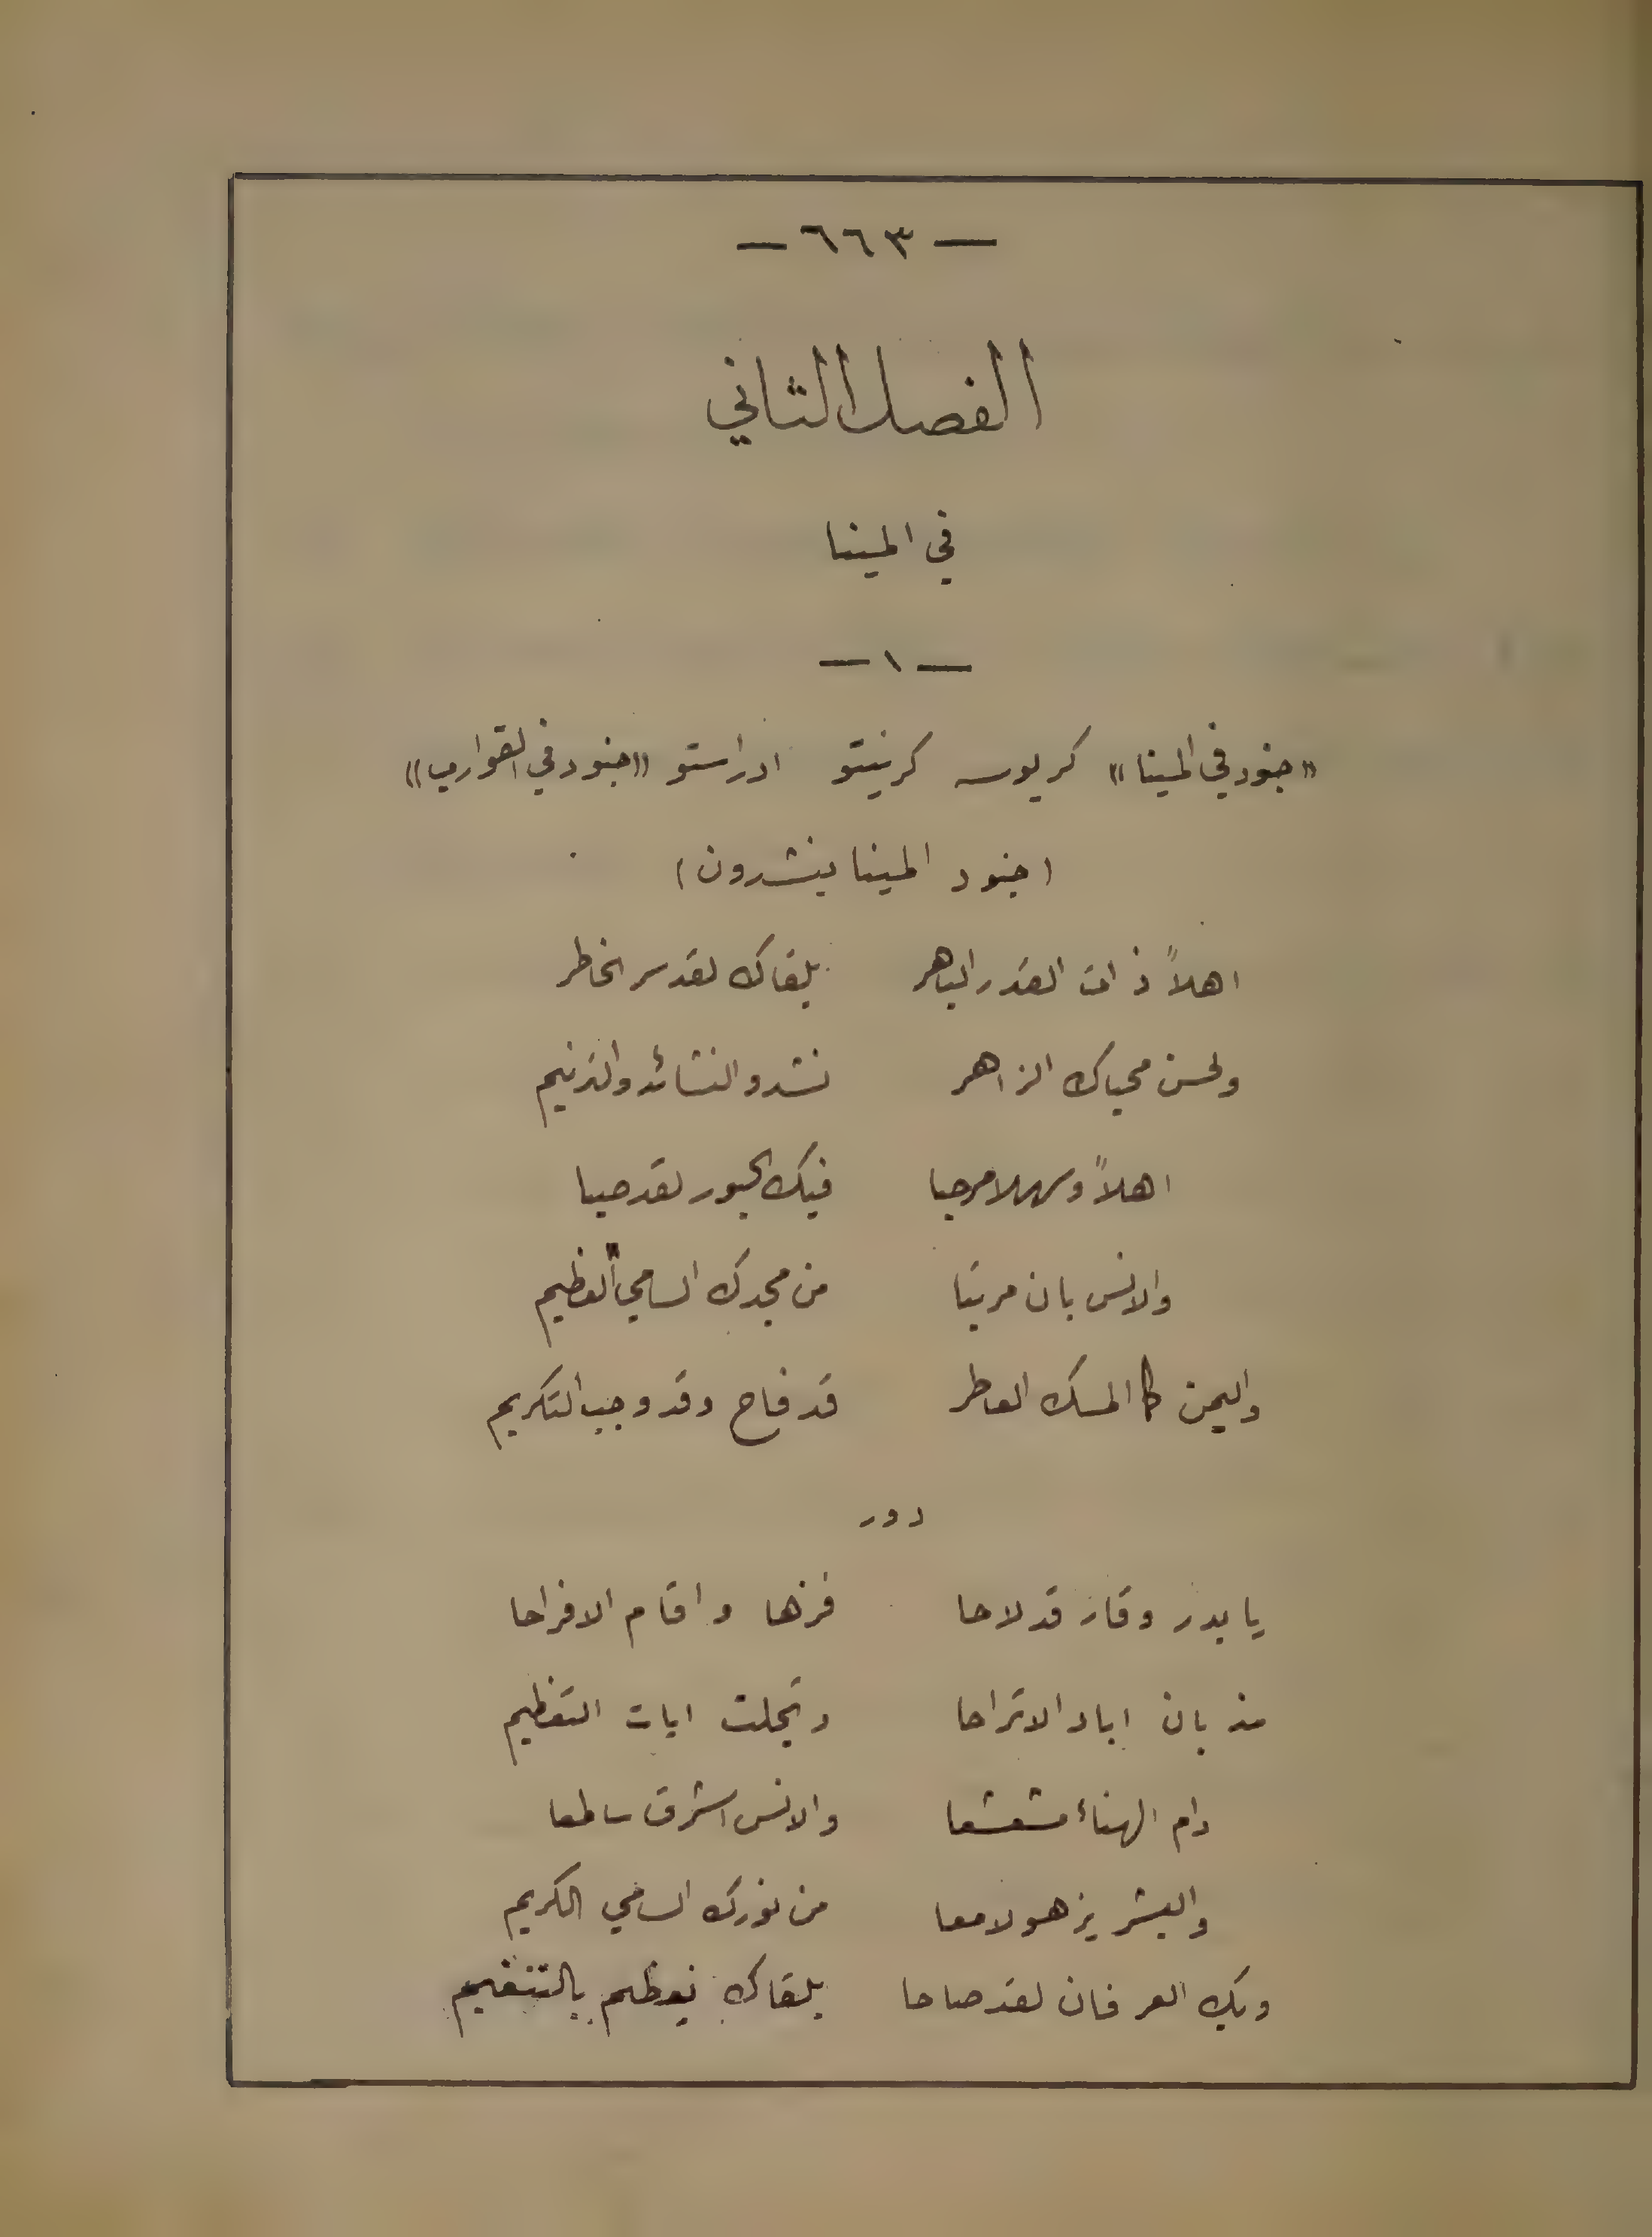 — ٦٦٣ —
الفصل الثاني
في المينا
— ١ —
«جنود في المينا» كريوس كرنيتو ادراستو «جنود في القوارب»
(جنود المينا ينشدون)
اهلاً ذات القدر الباهر بلقاك لقد سر الخاطر
ولحسن محياك الزاهر نشدو النشائد والترنيم
اهلاً وسهلا مرحبا فيك الحبور لقد صبا
والانس بان مرتبا من مجدك السامي العظيم
واليمن كالمسك العاطر قد فاح وقد وجب التكريم
دور
يا بدر وقار قد لاحا فزها واقام الافراحا
مذ بان اباد الاتراحا وتجلت ايات التعظيم
دام الهناء مشعشعا والانس اشرق ساطعا
والبشر يزهو لامعا من نورك السامي الكريم
وبك العرفان لقد صاحا بلقاك نعظم بالتنغيم